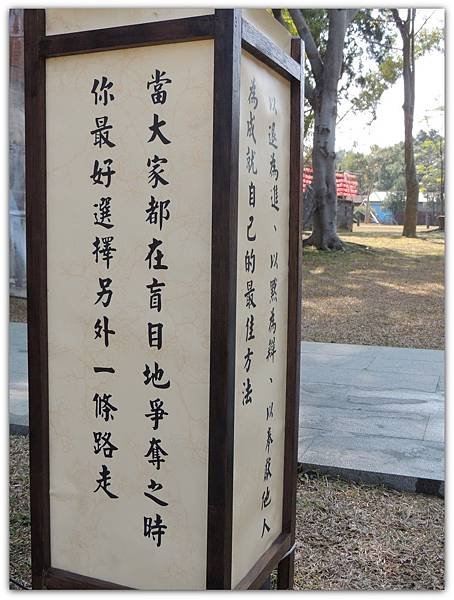 當大家都在盲目地爭奪之時
你最好選擇另外一條路走
以退為進、以默為辯、以奉獻他人
為成就自己的最佳方法